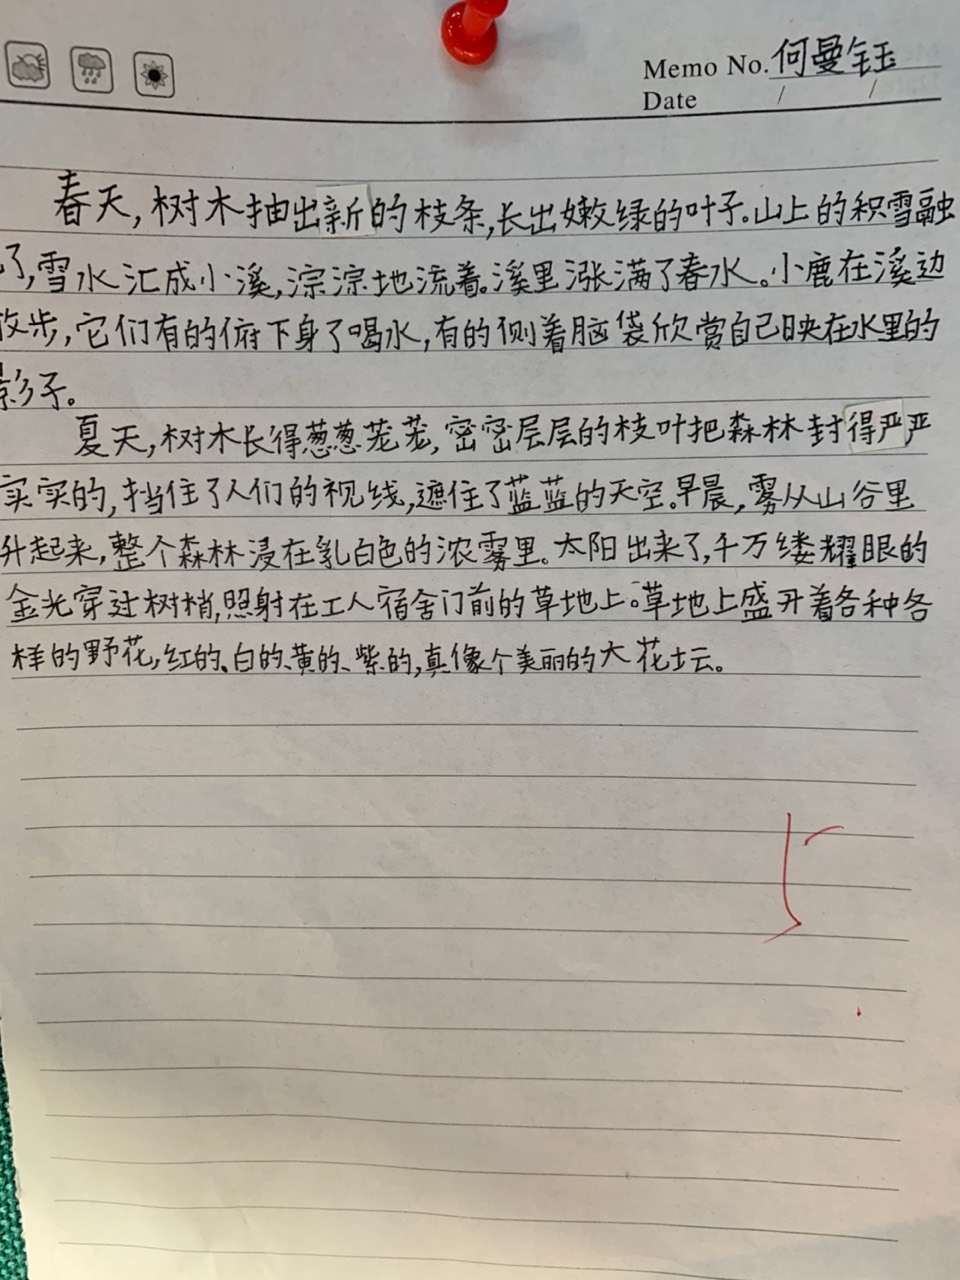 Memo No. 何曼钰
Date / /
春天,树木抽出新的枝条,长出嫩绿的叶子。山上的积雪融
了,雪水汇成小溪,淙淙地流着。溪里涨满了春水。小鹿在溪边
散步,它们有的俯下身了喝水,有的侧着脑袋欣赏自己映在水里的
影子。
夏天,树木长得葱葱茏茏,密密层层的枝叶把森林封得严严
实实的,挡住了人们的视线,遮住了蓝蓝的天空。早晨,雾从山谷里
升起来,整个森林浸在乳白色的浓雾里。太阳出来了,千万缕耀眼的
金光穿过树梢,照射在工人宿舍门前的草地上。草地上盛开着各种各
样的野花,红的、白的、黄的、紫的,真像个美丽的大花坛。